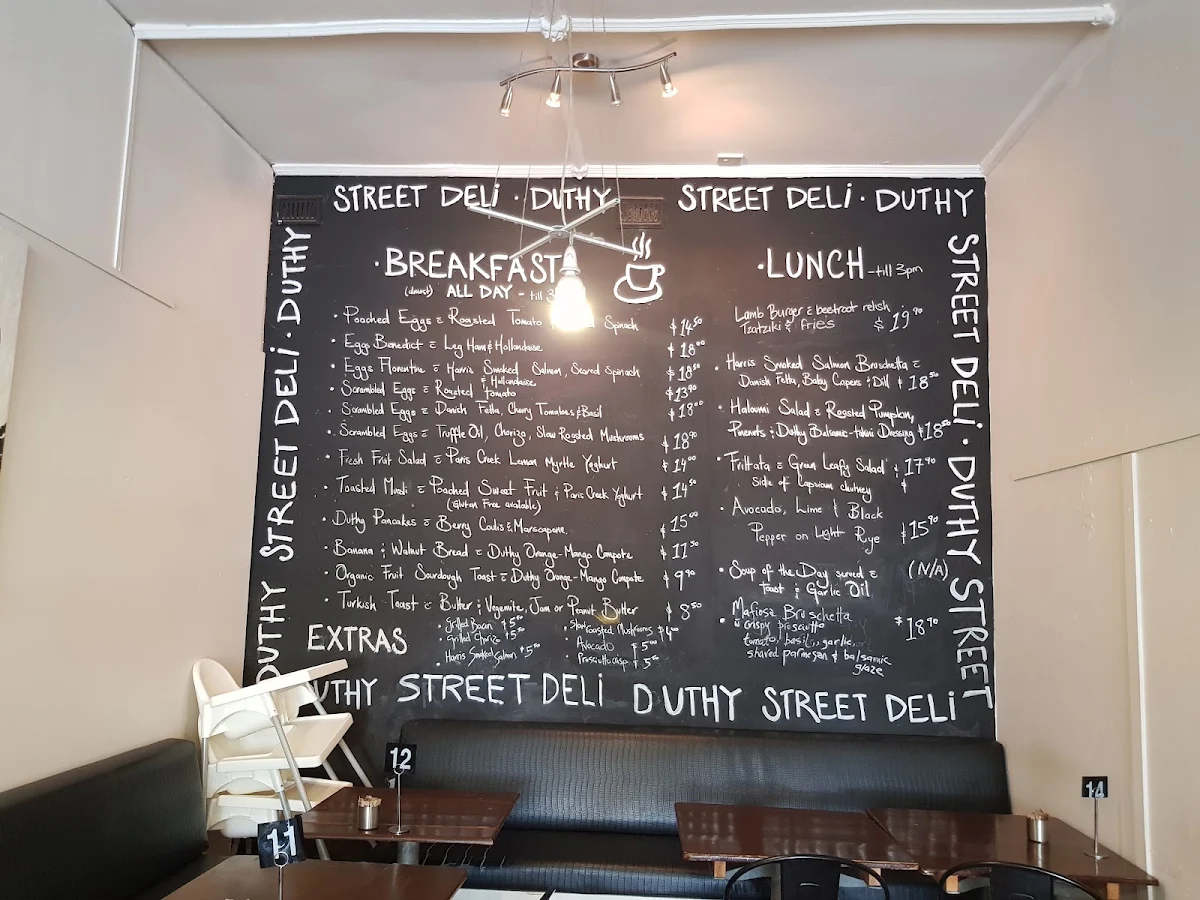 STREET DELi · DUTHY STREET DELi · DUTHY
DUTHY STREET DELi · DUTHY
STREET DELi · DUTHY STREET
· BREAKFAST
(almost) ALL DAY - till 3
· Poached Eggs c̄ Roasted Tomato Spinach $14.50
· Eggs Benedict c̄ Leg Ham & Hollandaise $18.00
· Eggs Florentine c̄ Harris Smoked Salmon, Seared Spinach $18.50
& Hollandaise
· Scrambled Eggs c̄ Roasted Tomato $13.90
· Scrambled Eggs c̄ Danish Fetta, Cherry Tomatoes & Basil $18.00
· Scrambled Eggs c̄ Truffle Oil, Chorizo, Slow Roasted Mushrooms $18.90
· Fresh Fruit Salad c̄ Paris Creek Lemon Myrtle Yoghurt $14.00
· Toasted Musli c̄ Poached Sweet Fruit & Paris Creek Yoghurt $14.50
(Gluten Free available)
· Duthy Pancakes c̄ Berry Coulis & Marscapone $15.00
· Banana & Walnut Bread c̄ Duthy Orange-Mango Compote $11.50
· Organic Fruit Sourdough Toast c̄ Duthy Orange-Mango Compote $9.90
· Turkish Toast c̄ Butter & Vegemite, Jam or Peanut Butter $8.50
EXTRAS
· Grilled Bacon $5.50
· Grilled Chorizo $5.50
· Harris Smoked Salmon $5.50
· Slow roasted Mushrooms $4.00
Avocado $5.00
· Prosciutto crisp $5.50
· LUNCH - till 3pm
Lamb Burger c̄ beetroot relish
Tzatziki & fries $19.90
· Harris Smoked Salmon Bruschetta c̄
Danish Fetta, Baby Capers & Dill $18.50
· Haloumi Salad c̄ Roasted Pumpkin,
Pinenuts & Duthy Balsamic-tahini Dressing $18.50
· Frittata c̄ Green Leafy Salad $17.90
side of Capsicum chutney $
· Avocado, Lime & Black
Pepper on Light Rye $15.90
· Soup of the Day served c̄ (N/A)
toast & Garlic Oil
· Mafiosa Bruschetta $18.90
c̄ crispy prosciutto
tomato, basil, garlic,
shaved parmesan & balsamic
glaze
UTHY STREET DELi DUTHY STREET DELi
12
11
14